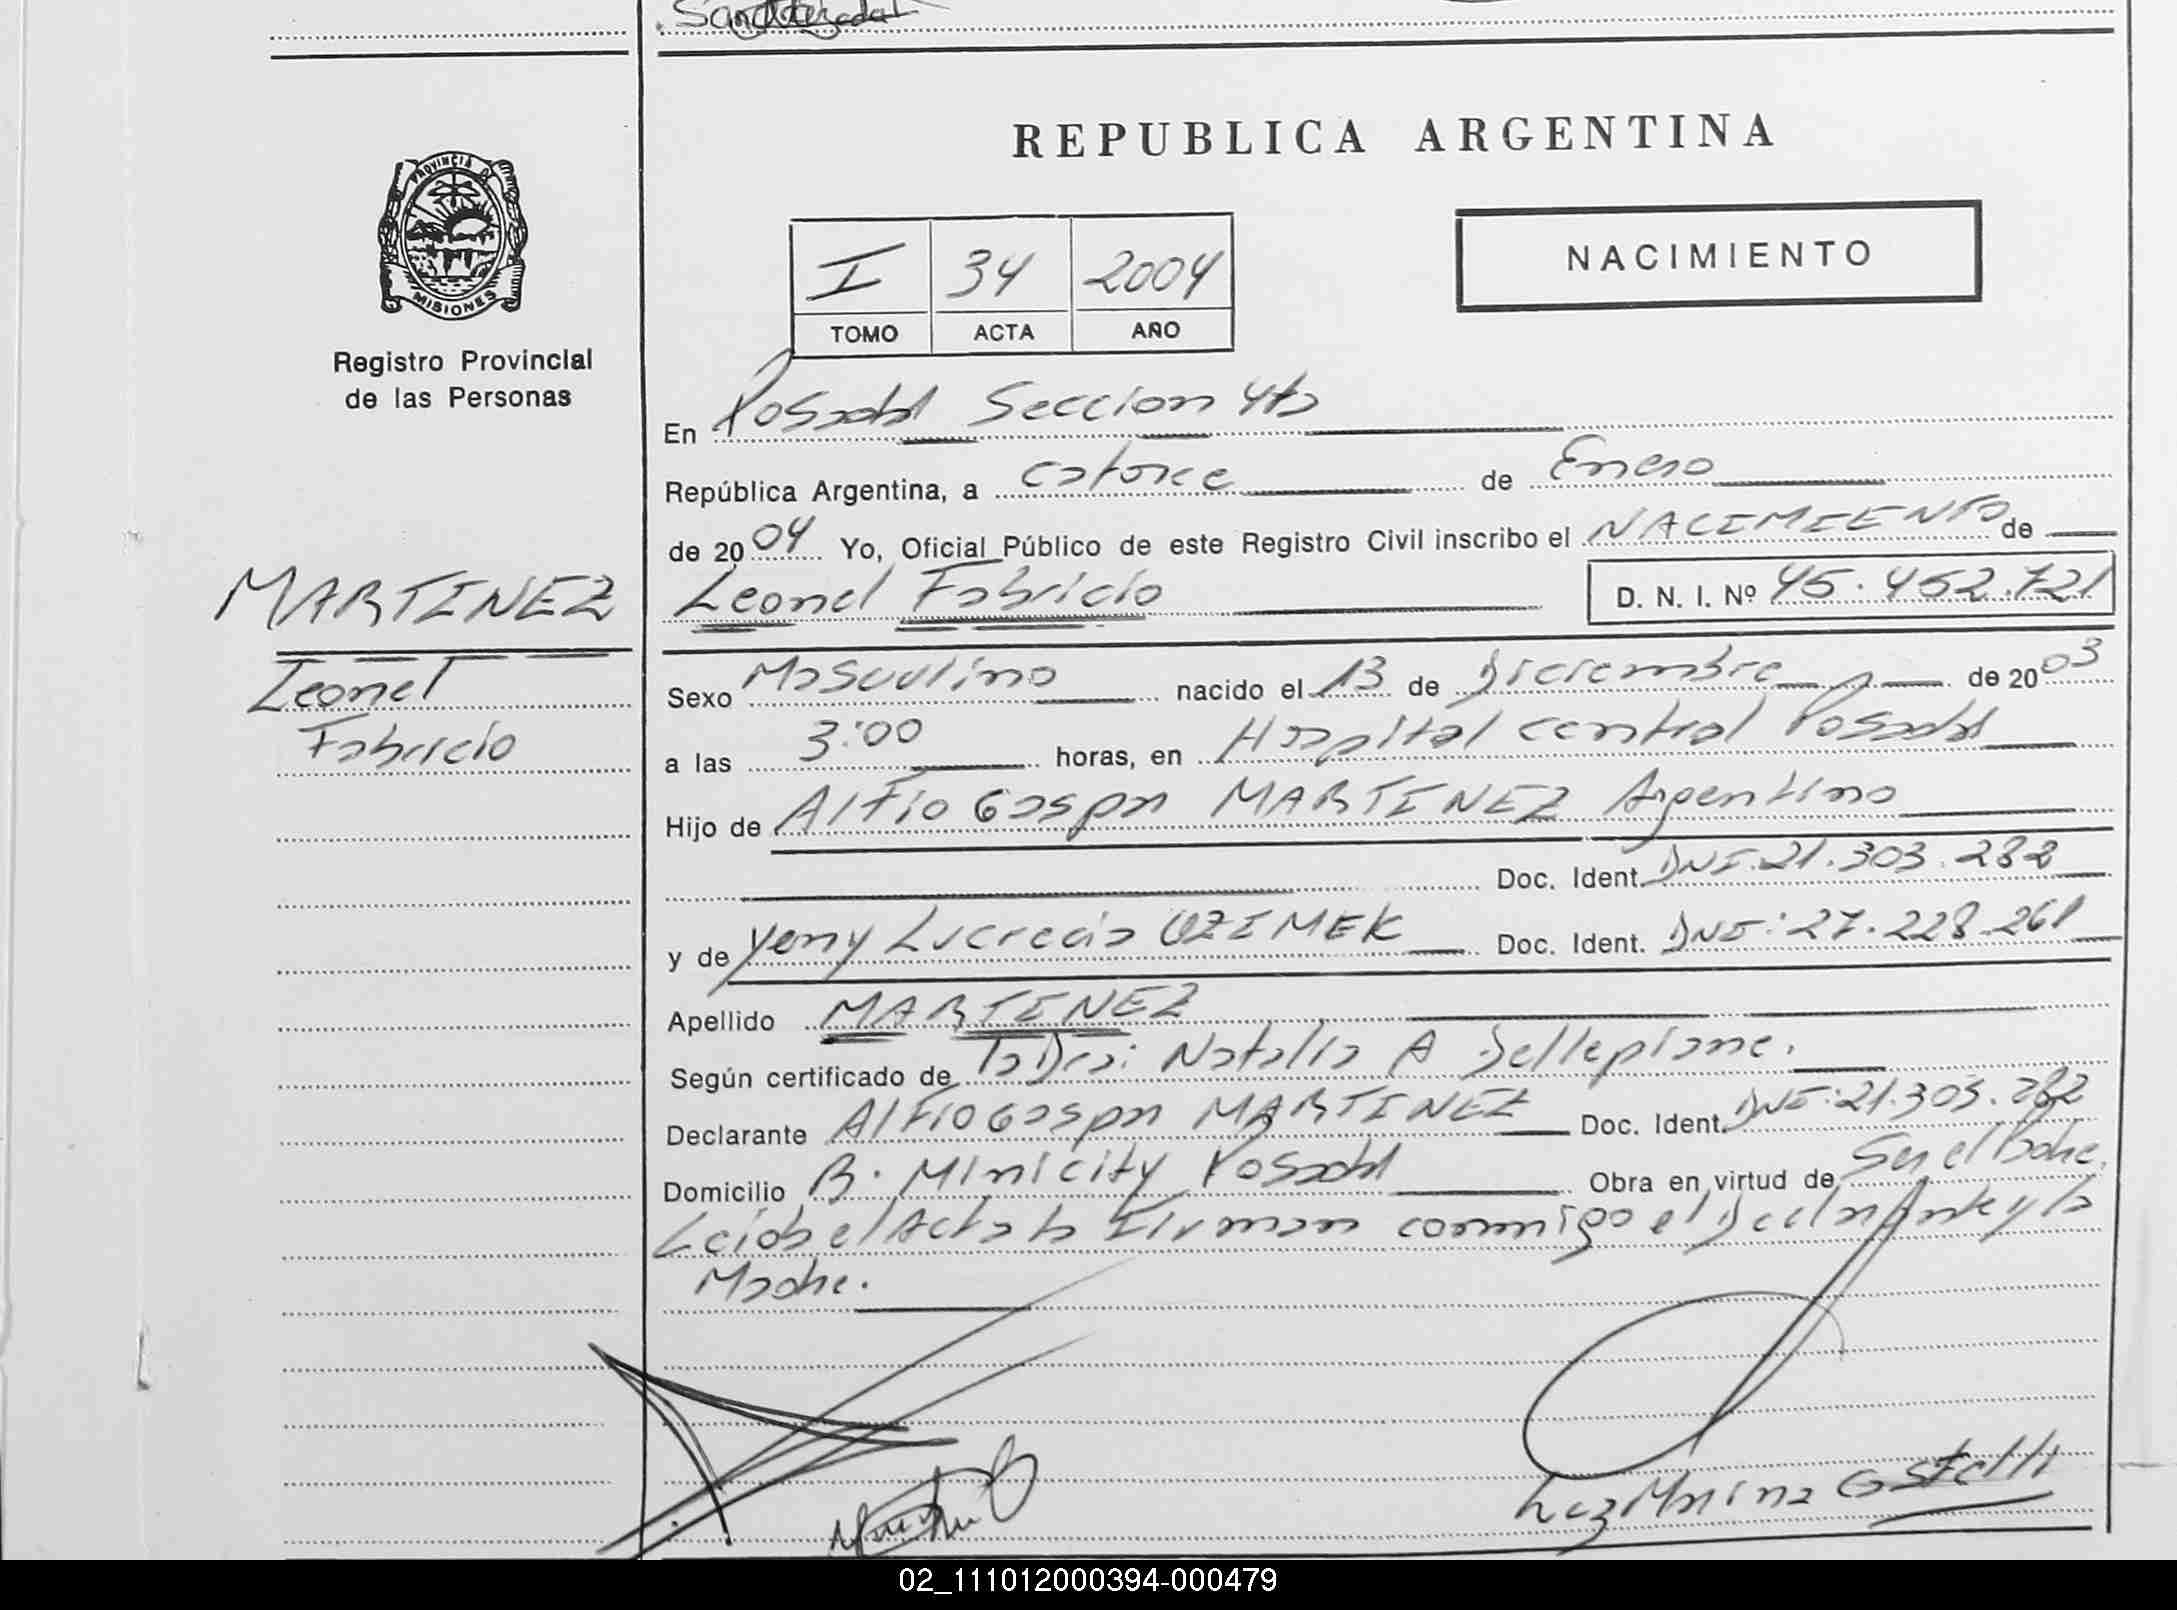 REPUBLICA ARGENTINA
PROVINCIA DE
MISIONES
Registro Provincial
de las Personas
NACIMIENTO
I 34 2004
TOMO ACTA AÑO
En Posadas Seccion 4ta
República Argentina, a catorce de Enero
de 2004 Yo, Oficial Público de este Registro Civil inscribo el NACIMIENTO de
MARTINEZ
Leonel Fabricio D. N. I. Nº 45.452.721
Leonel
Fabricio
Sexo Masculino nacido el 13 de Diciembre de 2003
a las 3:00 horas, en Hospital central Posadas
Hijo de Alfio Gaspar MARTINEZ Argentino
Doc. Ident. DNI. 21.303.282
y de Yeny Lucrecia UZIMEK Doc. Ident. DNI: 27.228.261
Apellido MARTINEZ
Según certificado de la Dra: Natalia A Delleplane.
Declarante Alfio Gaspar MARTINEZ Doc. Ident. DNI: 21.303.282
Domicilio B. Minicity Posadas Obra en virtud de Ser el Padre.
Leida el Acta la Firman conmigo el Declarante y la
Madre.
Luz Marina
02_111012000394-000479